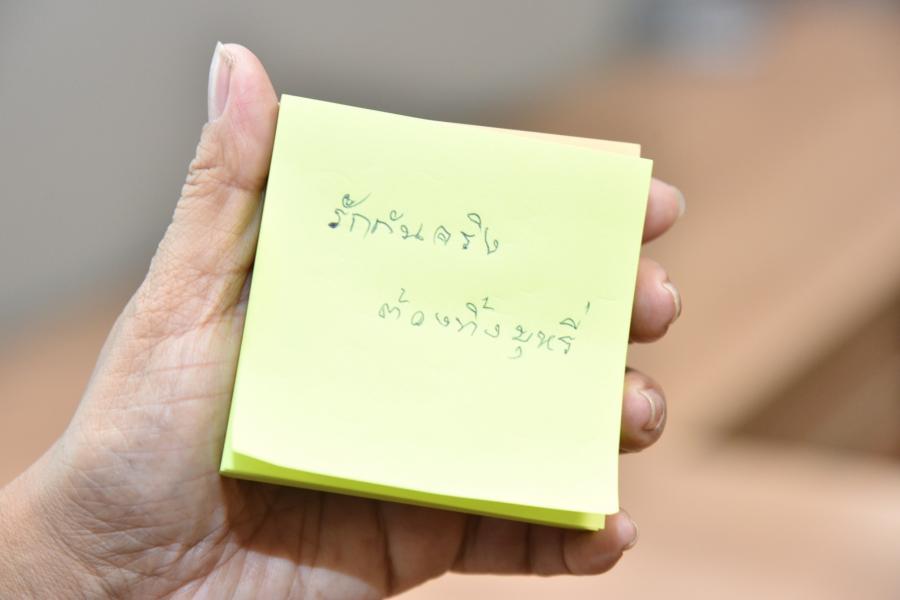 รักกันจริง
ต้องทิ้งบุหรี่